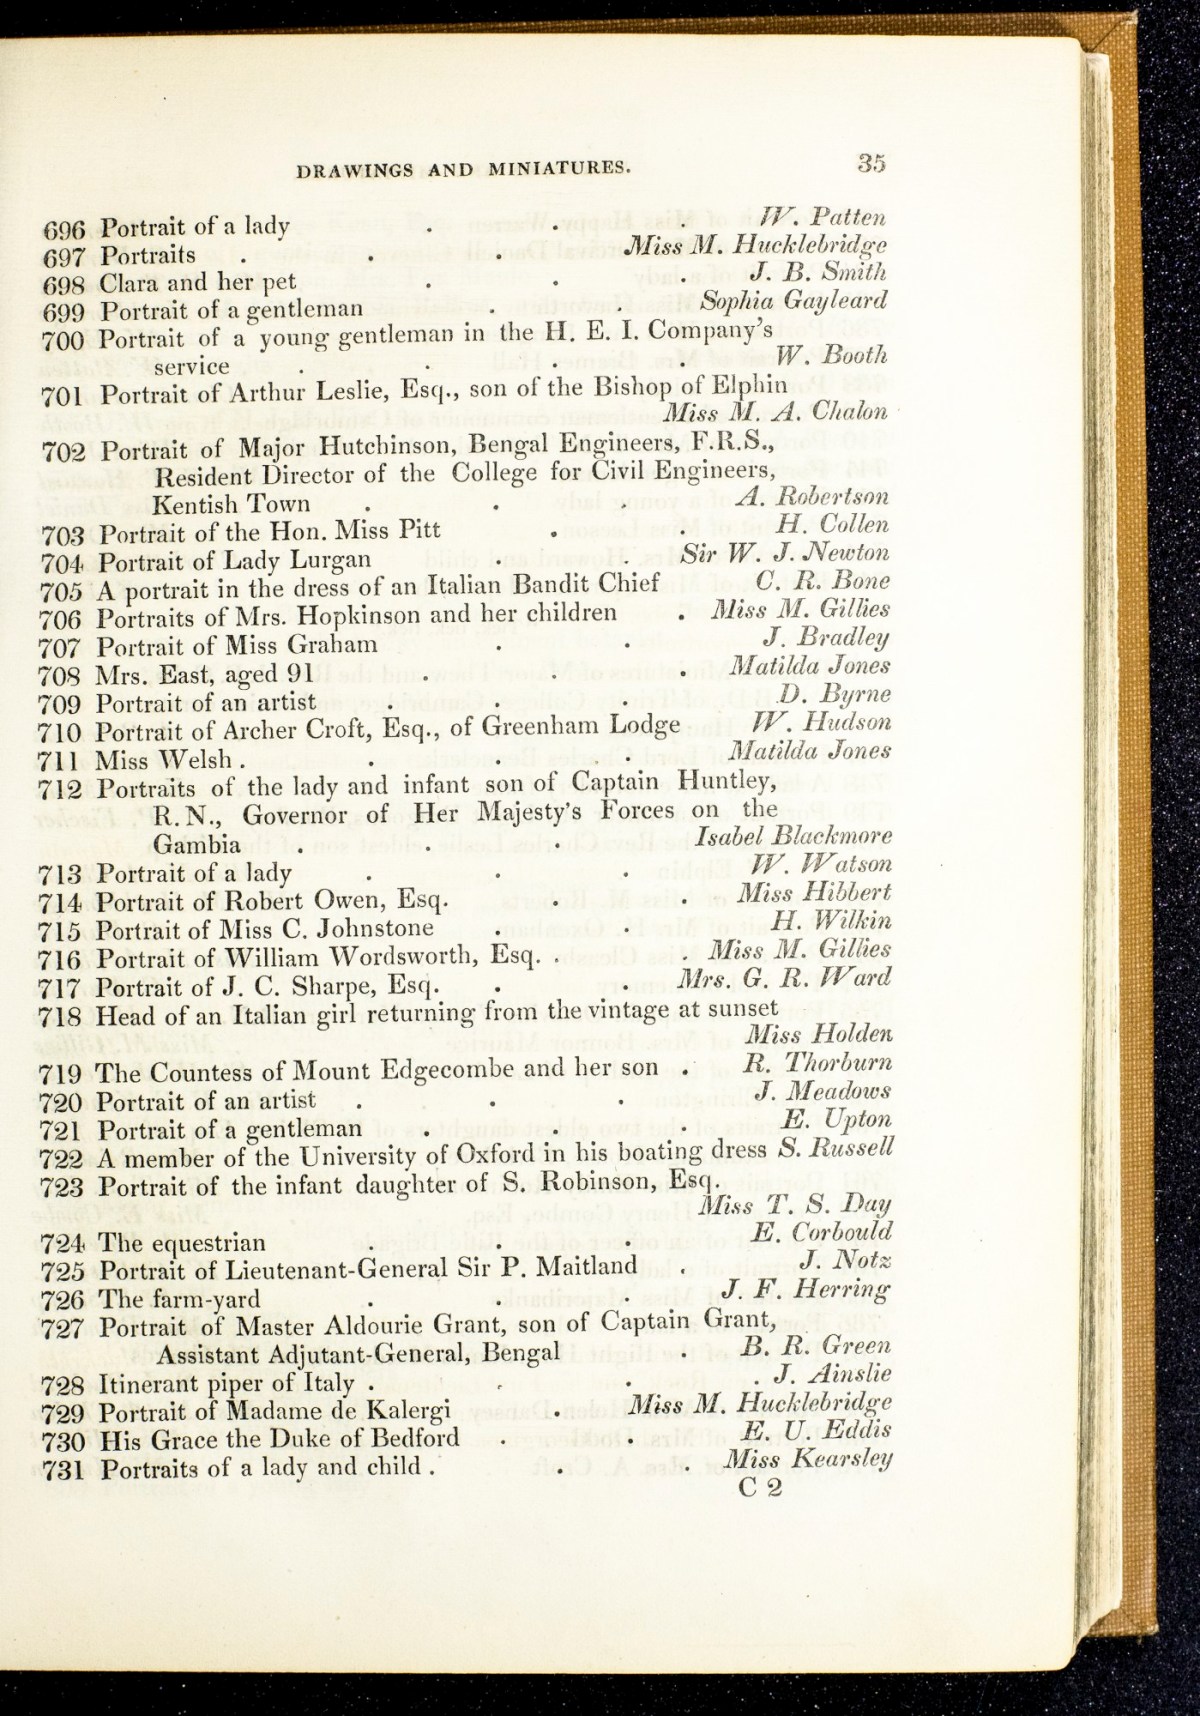 DRAWINGS AND MINIATURES. 35
696 Portrait of a lady . . . W. Patten
697 Portraits . . . . Miss M. Hucklebridge
698 Clara and her pet . . . J. B. Smith
699 Portrait of a gentleman . . Sophia Gayleard
700 Portrait of a young gentleman in the H. E. I. Company's
service . . . . W. Booth
701 Portrait of Arthur Leslie, Esq., son of the Bishop of Elphin
Miss M. A. Chalon
702 Portrait of Major Hutchinson, Bengal Engineers, F.R.S.,
Resident Director of the College for Civil Engineers,
Kentish Town . . . A. Robertson
703 Portrait of the Hon. Miss Pitt . . H. Collen
704 Portrait of Lady Lurgan . . Sir W. J. Newton
705 A portrait in the dress of an Italian Bandit Chief C. R. Bone
706 Portraits of Mrs. Hopkinson and her children . Miss M. Gillies
707 Portrait of Miss Graham . . J. Bradley
708 Mrs. East, aged 91 . . . Matilda Jones
709 Portrait of an artist . . . D. Byrne
710 Portrait of Archer Croft, Esq., of Greenham Lodge W. Hudson
711 Miss Welsh . . . . Matilda Jones
712 Portraits of the lady and infant son of Captain Huntley,
R. N., Governor of Her Majesty's Forces on the
Gambia . . . Isabel Blackmore
713 Portrait of a lady . . . W. Watson
714 Portrait of Robert Owen, Esq. . . Miss Hibbert
715 Portrait of Miss C. Johnstone . . H. Wilkin
716 Portrait of William Wordsworth, Esq. . . Miss M. Gillies
717 Portrait of J. C. Sharpe, Esq. . . Mrs. G. R. Ward
718 Head of an Italian girl returning from the vintage at sunset
Miss Holden
719 The Countess of Mount Edgecombe and her son . R. Thorburn
720 Portrait of an artist . . . J. Meadows
721 Portrait of a gentleman . . . E. Upton
722 A member of the University of Oxford in his boating dress S. Russell
723 Portrait of the infant daughter of S. Robinson, Esq.
Miss T. S. Day
724 The equestrian . . . E. Corbould
725 Portrait of Lieutenant-General Sir P. Maitland . J. Notz
726 The farm-yard . . . J. F. Herring
727 Portrait of Master Aldourie Grant, son of Captain Grant,
Assistant Adjutant-General, Bengal . B. R. Green
728 Itinerant piper of Italy . . . . J. Ainslie
729 Portrait of Madame de Kalergi . Miss M. Hucklebridge
730 His Grace the Duke of Bedford . . E. U. Eddis
731 Portraits of a lady and child . . . Miss Kearsley
C 2